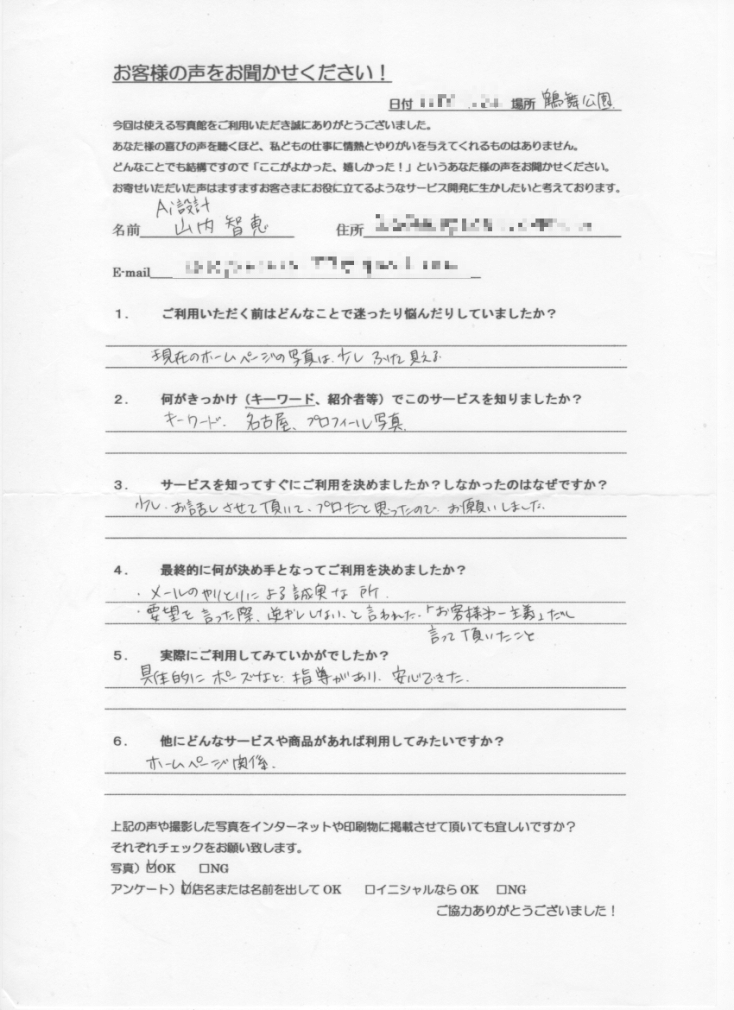 お客様の声をお聞かせください！
日付 場所 鶴舞公園
今回は使える写真館をご利用いただき誠にありがとうございました。
あなた様の喜びの声を聴くほど、私どもの仕事に情熱とやりがいを与えてくれるものはありません。
どんなことでも結構ですので「ここがよかった、嬉しかった！」というあなた様の声をお聞かせください。
お寄せいただいた声はますますお客さまにお役に立てるようなサービス開発に生かしたいと考えております。
Ai設計
名前 山内 智恵 住所
E-mail
1. ご利用いただく前はどんなことで迷ったり悩んだりしていましたか？
現在のホームページの写真は、少し ふけて見える
2. 何がきっかけ（キーワード、紹介者等）でこのサービスを知りましたか？
キーワード、名古屋、プロフィール写真
3. サービスを知ってすぐにご利用を決めましたか？しなかったのはなぜですか？
少し、お話しさせて頂いて、プロだと思ったので、お願いしました。
4. 最終的に何が決め手となってご利用を決めましたか？
・メールのやりとりによる誠実な所。
・要望を言った際、逆ギレしない、と言われた、「お客様第一主義」だと
言って頂いたこと
5. 実際にご利用してみていかがでしたか？
具体的にポーズなど、指導があり、安心できた。
6. 他にどんなサービスや商品があれば利用してみたいですか？
ホームページ関係。
上記の声や撮影した写真をインターネットや印刷物に掲載させて頂いても宜しいですか？
それぞれチェックをお願い致します。
写真）☑OK □NG
アンケート）☑店名または名前を出して OK □イニシャルなら OK □NG
ご協力ありがとうございました！